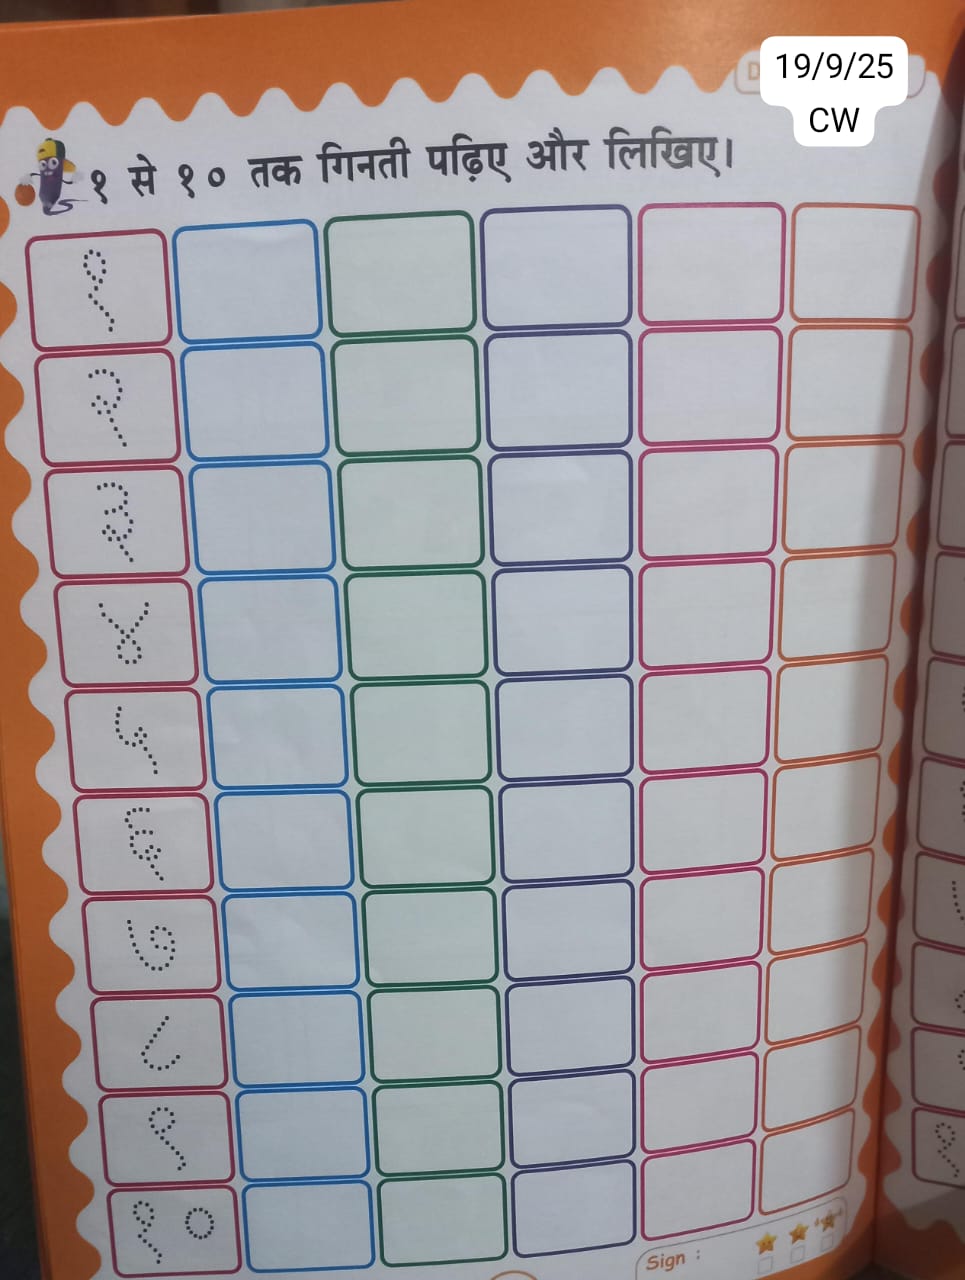 19/9/25
CW
१ से १० तक गिनती पढ़िए और लिखिए।
१
२
३
४
५
६
७
८
९
१०
Sign :